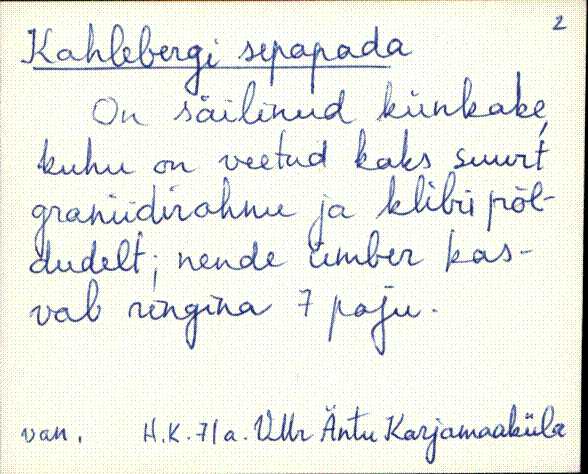 2
Kahlebergi sepapada
On säilinud künkake,
kuhu on veetud kaks suurt
graniidirahnu ja klibu põl-
dudelt; nende ümber kas-
vab ringina 7 paju.
van. H.K. 71a. VMr Äntu Karjamaaküla